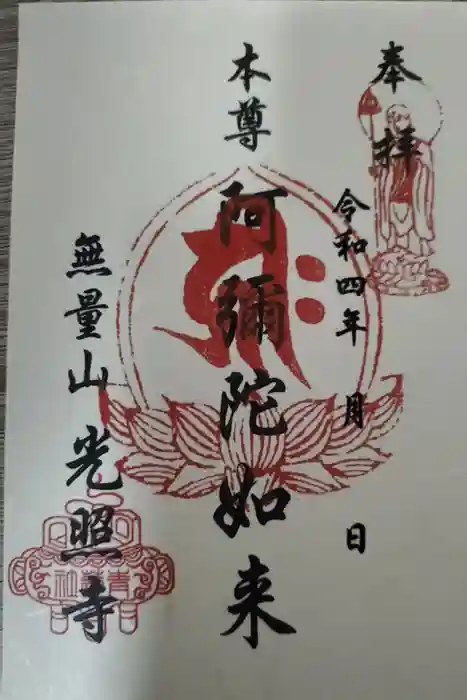 奉拝
令和四年 月 日
本尊
阿彌陀如来
無量山光照寺